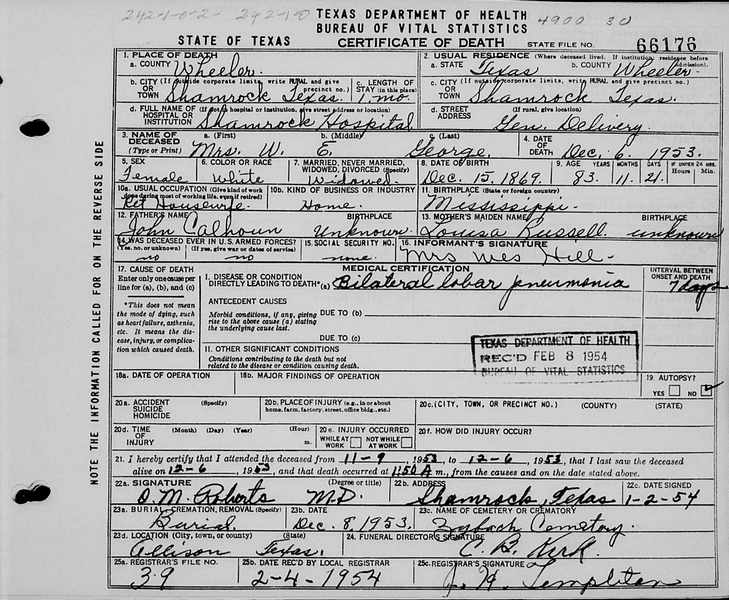 242-1-0-2- 242-1-0
TEXAS DEPARTMENT OF HEALTH
4900 30
BUREAU OF VITAL STATISTICS
STATE OF TEXAS
CERTIFICATE OF DEATH
STATE FILE NO. 66176
1. PLACE OF DEATH
2. USUAL RESIDENCE (Where deceased lived. If institution: residence before admission).
a. COUNTY Wheeler.
a. STATE Texas
b. COUNTY Wheeler.
b. CITY (If outside corporate limits, write RURAL and give precinct no.) OR TOWN Shamrock Texas.
c. LENGTH OF STAY (in this place) 1 mo.
c. CITY (If outside corporate limits, write RURAL and give precinct no.) OR TOWN Shamrock Texas.
d. FULL NAME OF (If not in hospital or institution, give street address or location) HOSPITAL OR INSTITUTION Shamrock Hospital
d. STREET ADDRESS (If rural, give location) Gen. Delivery.
3. NAME OF DECEASED (Type or Print)
a. (First) Mrs. W.
b. (Middle) E.
c. (Last) George,
4. DATE OF DEATH Dec. 6. 1953.
5. SEX Female
6. COLOR OR RACE White
7. MARRIED, NEVER MARRIED, WIDOWED, DIVORCED (Specify) Widowed.
8. DATE OF BIRTH Dec. 15. 1869.
9. AGE YEARS 83. MONTHS 11. DAYS 21. IF UNDER 24 HRS. Hours Min.
10a. USUAL OCCUPATION (Give kind of work done during most of working life, even if retired) Ret Housewife.
10b. KIND OF BUSINESS OR INDUSTRY Home.
11. BIRTHPLACE (State or foreign country) Mississippi.
12. FATHER'S NAME John Calhoun
BIRTHPLACE Unknown
13. MOTHER'S MAIDEN NAME Louisa Russell.
BIRTHPLACE unknown
14. WAS DECEASED EVER IN U.S. ARMED FORCES? (Yes, no, or unknown) no (If yes, give war or dates of service) no
15. SOCIAL SECURITY NO. none.
16. INFORMANT'S SIGNATURE Mrs Wes Hill.
17. CAUSE OF DEATH
Enter only one cause per line for (a), (b), and (c)
MEDICAL CERTIFICATION
INTERVAL BETWEEN ONSET AND DEATH
I. DISEASE OR CONDITION DIRECTLY LEADING TO DEATH* (a) Bilateral lobar pneumonia
7 days
*This does not mean the mode of dying, such as heart failure, asthenia, etc. It means the disease, injury, or complication which caused death.
ANTECEDENT CAUSES
Morbid conditions, if any, giving rise to the above cause (a) stating the underlying cause last.
DUE TO (b)
DUE TO (c)
II. OTHER SIGNIFICANT CONDITIONS
Conditions contributing to the death but not related to the disease or condition causing death.
TEXAS DEPARTMENT OF HEALTH
REC'D FEB 8 1954
BUREAU OF VITAL STATISTICS
18a. DATE OF OPERATION
18b. MAJOR FINDINGS OF OPERATION
19. AUTOPSY?
YES NO
20a. ACCIDENT SUICIDE HOMICIDE (Specify)
20b. PLACE OF INJURY (e.g., in or about home, farm, factory, street, office bldg., etc.)
20c. (CITY, TOWN, OR PRECINCT NO.) (COUNTY) (STATE)
20d. TIME OF INJURY (Month) (Day) (Year) (Hour) m.
20e. INJURY OCCURRED WHILE AT WORK NOT WHILE AT WORK
20f. HOW DID INJURY OCCUR?
21. I hereby certify that I attended the deceased from 11-9, 1953, to 12-6, 1953, that I last saw the deceased
alive on 12-6, 1953, and that death occurred at 1:50 A m., from the causes and on the date stated above.
22a. SIGNATURE O. M. Roberts (Degree or title) M.D.
22b. ADDRESS Shamrock, Texas
22c. DATE SIGNED 1-2-54
23a. BURIAL, CREMATION, REMOVAL (Specify) Burial.
23b. DATE Dec. 8, 1953.
23c. NAME OF CEMETERY OR CREMATORY Zybach Cemetery.
23d. LOCATION (City, town, or county) (State) Allison Texas.
24. FUNERAL DIRECTOR'S SIGNATURE C. B. Kirk.
25a. REGISTRAR'S FILE NO. 39
25b. DATE REC'D BY LOCAL REGISTRAR 2-4-1954
25c. REGISTRAR'S SIGNATURE J. H. Templeton
NOTE THE INFORMATION CALLED FOR ON THE REVERSE SIDE